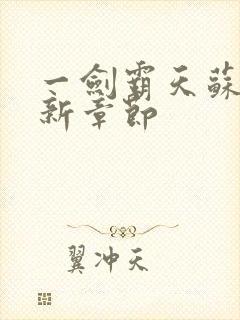 一劍霸天蘇
新章節
翼沖天